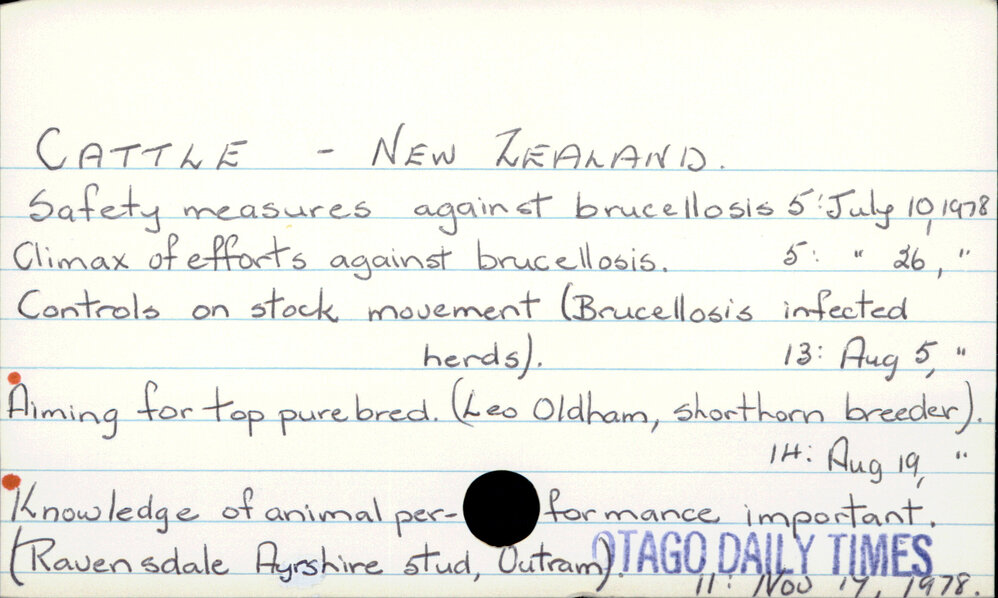 CATTLE - NEW ZEALAND.
Safety measures against brucellosis 5: July 10, 1978
Climax of efforts against brucellosis. 5: " 26, "
Controls on stock movement (Brucellosis infected
herds). 13: Aug 5, "
Aiming for top pure bred. (Leo Oldham, shorthorn breeder).
14: Aug 19, "
Knowledge of animal per-formance important.
(Ravensdale Ayrshire stud, Outram). OTAGO DAILY TIMES
11: Nov 17, 1978.